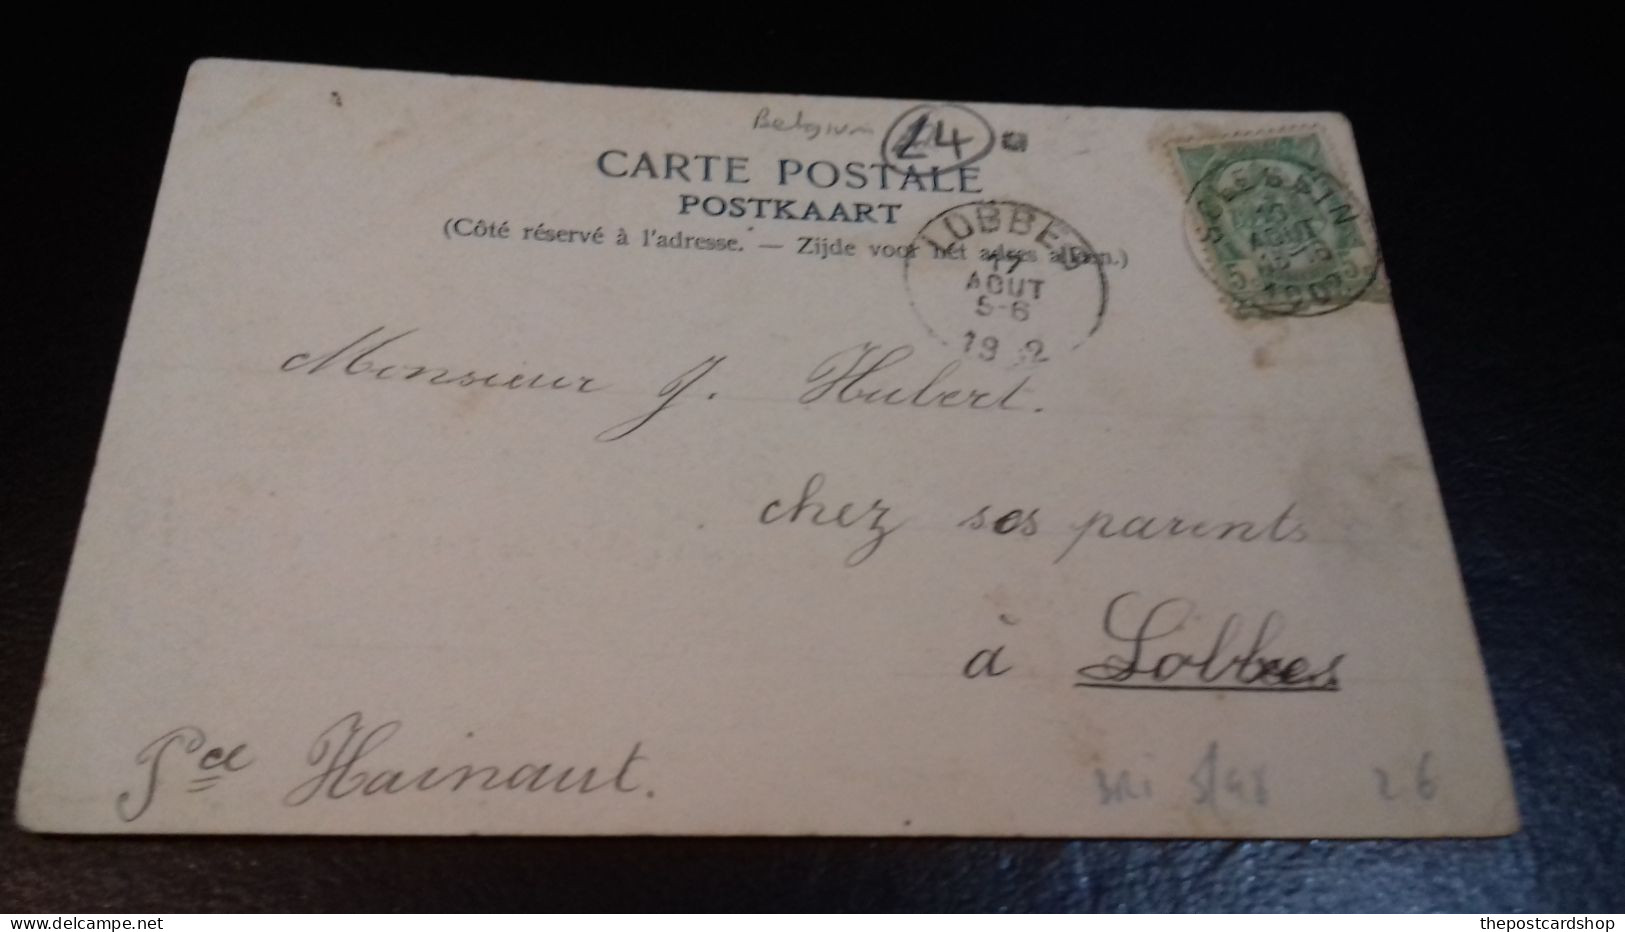 Belgium 24
CARTE POSTALE
POSTKAART
(Côté réservé à l'adresse. — Zijde voor het adres alleen.)
LOBBES
17
AOUT
5-6
19 2
AOUT
5 5
Monsieur J. Hubert.
chez ses parents
à Lobbes
Pce Hainaut.
26
delcampe.net
thepostcardshop